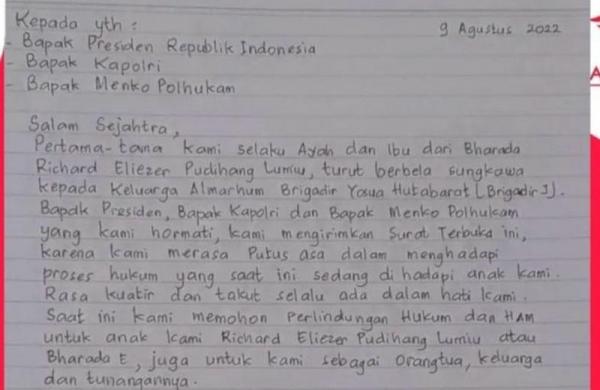 Kepada yth :
9 Agustus 2022
- Bapak Presiden Republik Indonesia
- Bapak Kapolri
- Bapak Menko Polhukam
Salam Sejahtra,
Pertama-tama kami selaku Ayah dan Ibu dari Bharada
Richard Eliezer Pudihang Lumiu, turut berbela sungkawa
kepada Keluarga Almarhum Brigadir Yosua Hutabarat [Brigadir J].
Bapak Presiden, Bapak Kapolri dan Bapak Menko Polhukam
yang kami hormati, kami mengirimkan Surat Terbuka ini,
karena kami merasa Putus asa dalam menghadapi
proses hukum yang saat ini sedang di hadapi anak kami.
Rasa kuatir dan takut selalu ada dalam hati kami.
Saat ini kami memohon Perlindungan Hukum dan HAM
untuk anak kami Richard Eliezer Pudihang Lumiu atau
Bharada E, juga untuk kami sebagai Orangtua, keluarga
dan tunangannya.